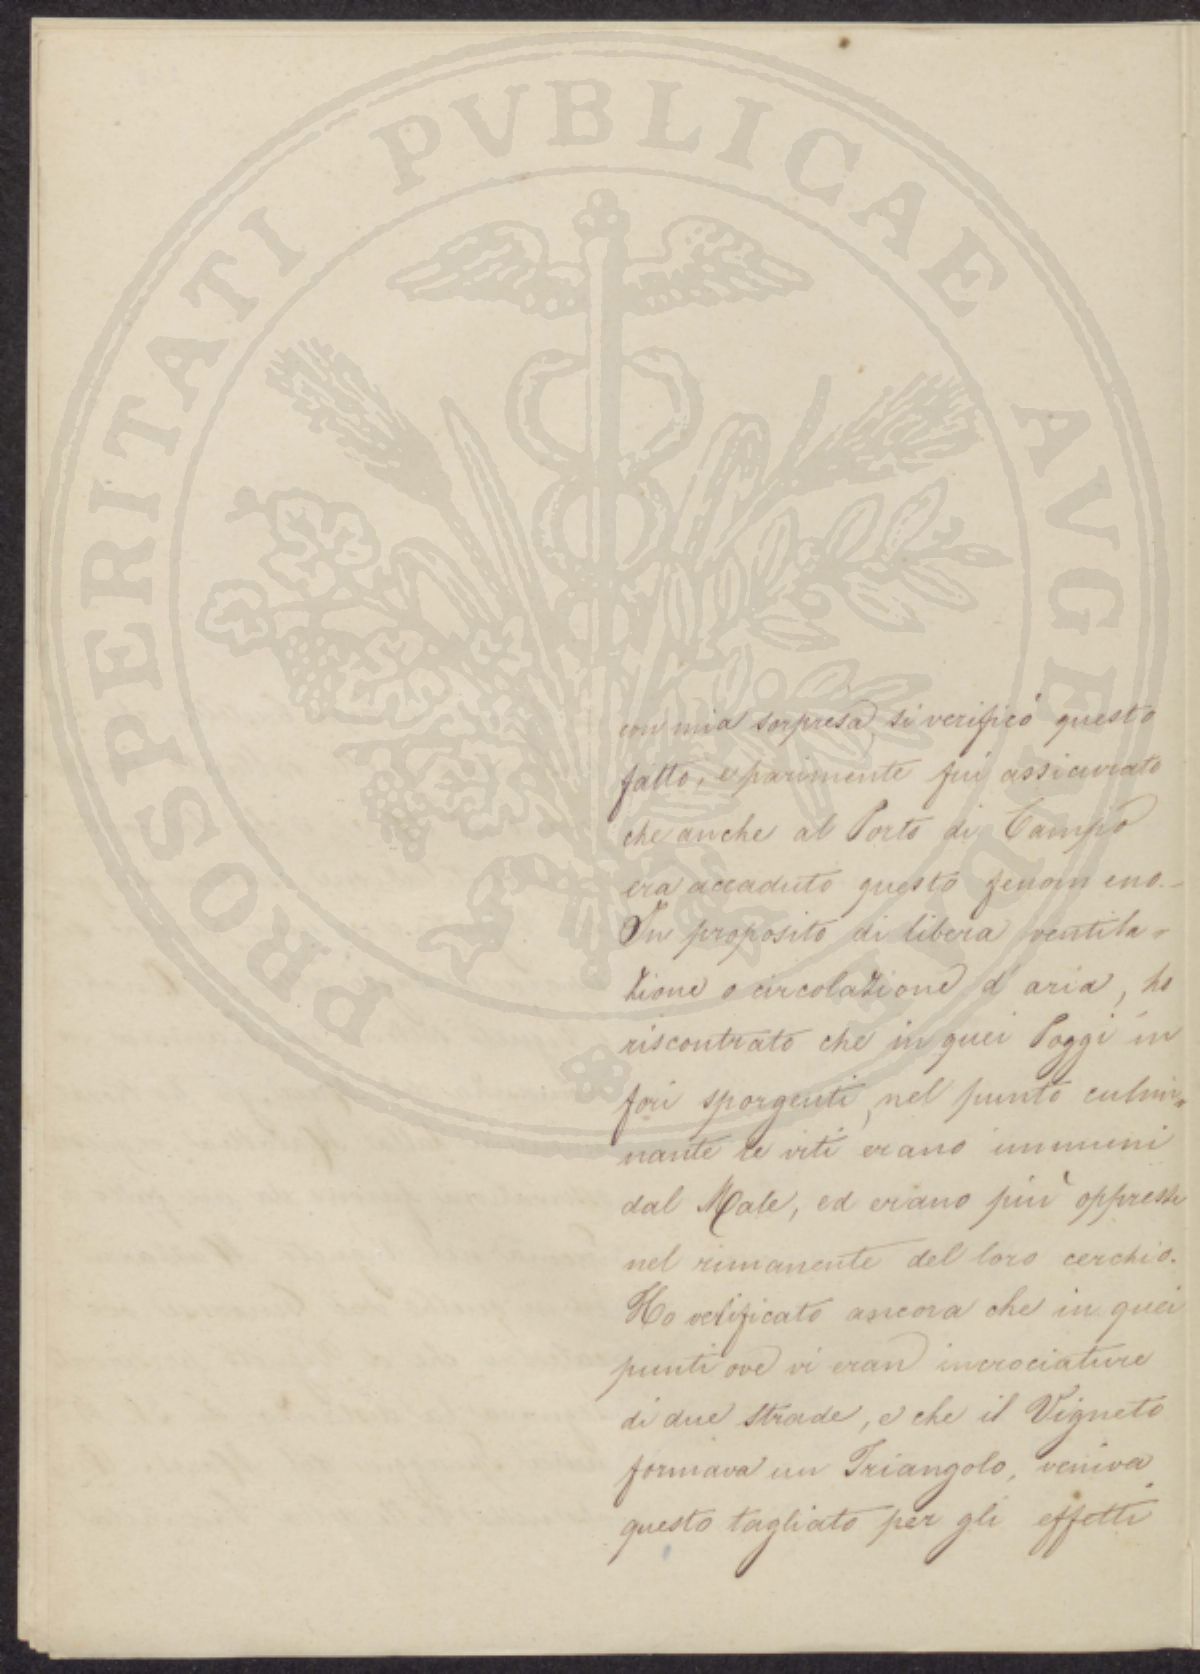 PROSPERITATI PVBLICAE AVGENDAE
con mia sorpresa, si verificò questo
fatto, e parimente fui assicurato
che anche al Porto di Campo
era accaduto questo fenomeno. –
In proposito di libera ventila-
zione o circolazione d'aria, ho
riscontrato che in quei Poggi in
fori sporgenti, nel punto culmi-
nante le viti erano immuni
dal Male, ed erano più oppresse
nel rimanente del loro cerchio.
Ho verificato ancora che in quei
punti ove vi eran incrociature
di due Strade, e che il Vigneto
formava un Triangolo, veniva
questo tagliato per gli effetti